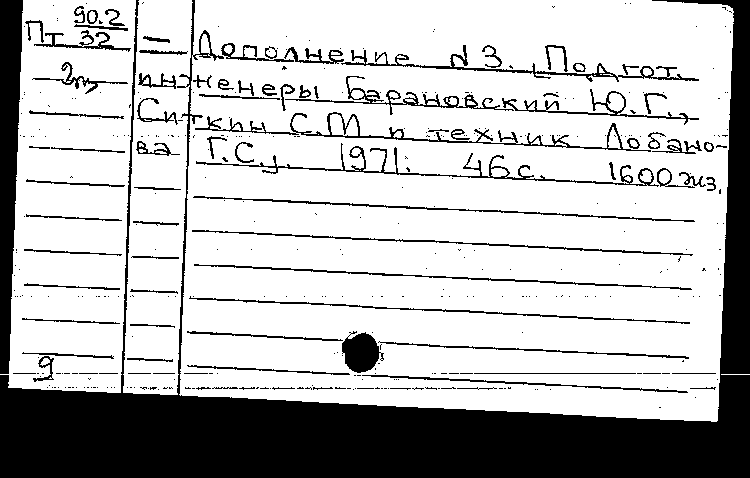 90.2
Пт 32 — Дополнение N 3. [Подгот.
инженеры Барановский Ю.Г.,
Ситкин С.М и техник Лобано-
ва Г.С.]. 1971. 46 с. 1600 экз.
9